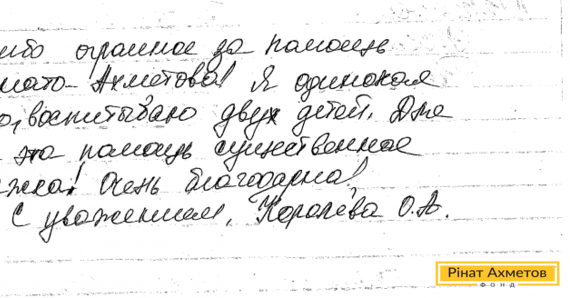 ибо огромное за помощь
ната Ахметова! Я одинокая
о, воспитываю двух детей. Для
эта помощь существенное
жка! Очень благодарна!
С уважением, Королёва О.А.
Рінат Ахметов
ФОНД